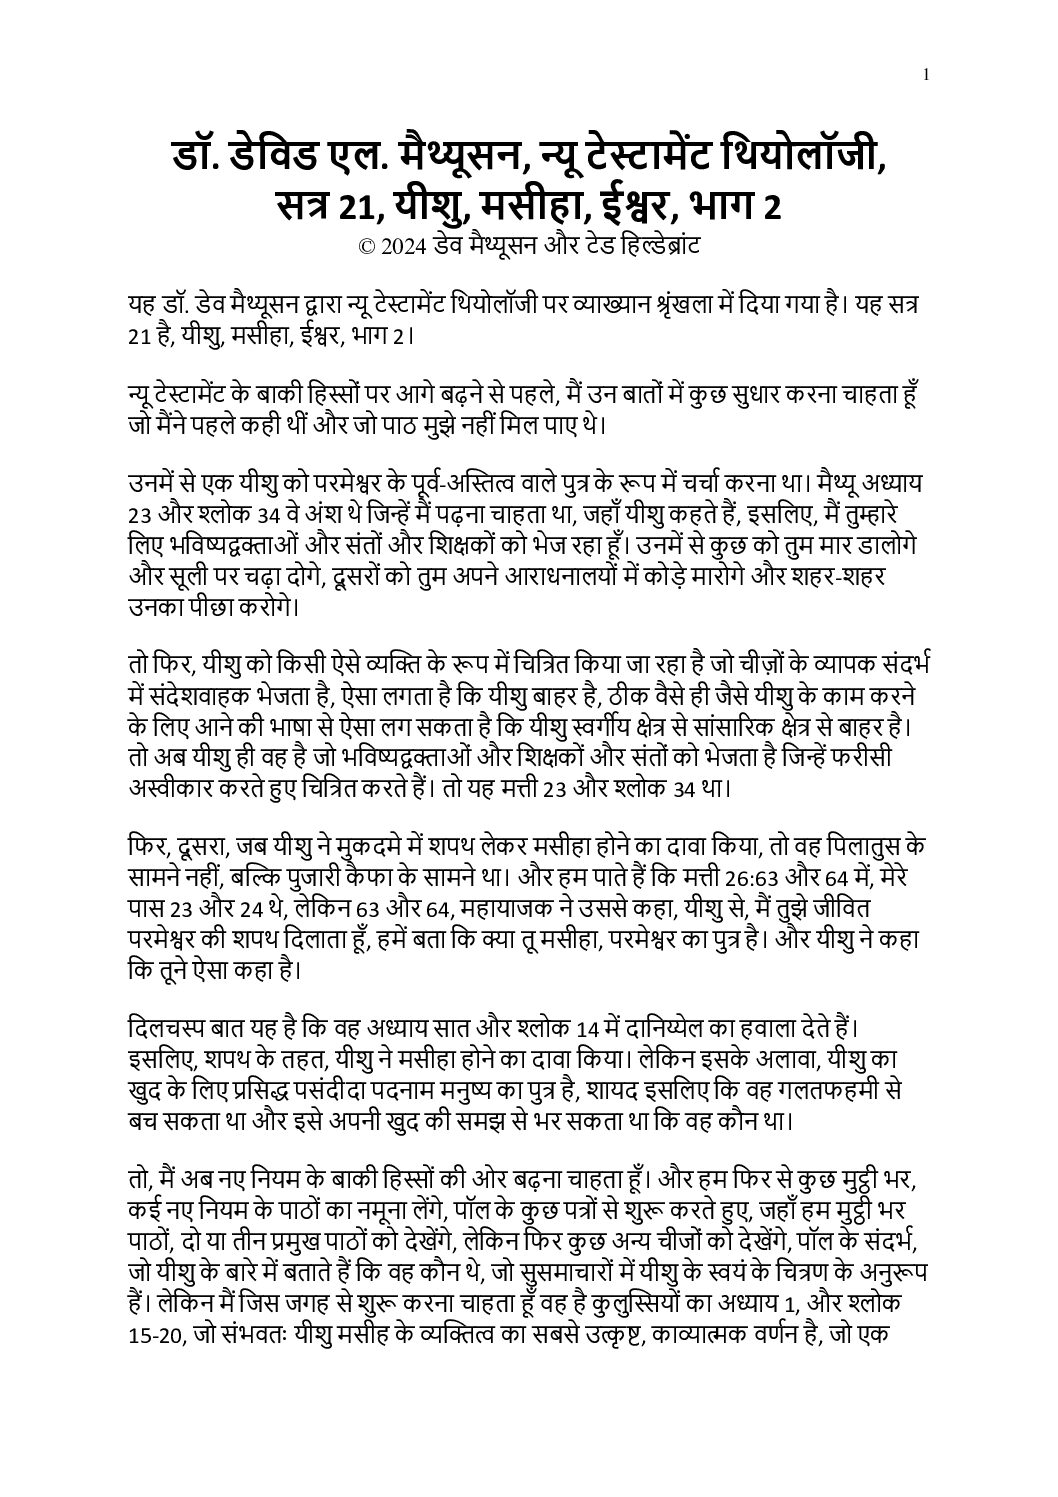 1
डॉ. डेविड एल. मैथ्यूसन, न्यू टेस्टामेंट थियोलॉजी,
सत्र 21, यीशु, मसीहा, ईश्वर, भाग 2
© 2024 डेव मैथ्यूसन और टेड हिल्डेब्रांट
यह डॉ. डेव मैथ्यूसन द्वारा न्यू टेस्टामेंट थियोलॉजी पर व्याख्यान श्रृंखला में दिया गया है। यह सत्र
21 है, यीशु, मसीहा, ईश्वर, भाग 2।
न्यू टेस्टामेंट के बाकी हिस्सों पर आगे बढ़ने से पहले, मैं उन बातों में कुछ सुधार करना चाहता हूँ
जो मैंने पहले कही थीं और जो पाठ मुझे नहीं मिल पाए थे।
उनमें से एक यीशु को परमेश्वर के पूर्व-अस्तित्व वाले पुत्र के रूप में चर्चा करना था। मैथ्यू अध्याय
23 और श्लोक 34 वे अंश थे जिन्हें मैं पढ़ना चाहता था, जहाँ यीशु कहते हैं, इसलिए, मैं तुम्हारे
लिए भविष्यद्वक्ताओं और संतों और शिक्षकों को भेज रहा हूँ। उनमें से कुछ को तुम मार डालोगे
और सूली पर चढ़ा दोगे, दूसरों को तुम अपने आराधनालयों में कोड़े मारोगे और शहर-शहर
उनका पीछा करोगे।
तो फिर, यीशु को किसी ऐसे व्यक्ति के रूप में चित्रित किया जा रहा है जो चीज़ों के व्यापक संदर्भ
में संदेशवाहक भेजता है, ऐसा लगता है कि यीशु बाहर है, ठीक वैसे ही जैसे यीशु के काम करने
के लिए आने की भाषा से ऐसा लग सकता है कि यीशु स्वर्गीय क्षेत्र से सांसारिक क्षेत्र से बाहर है।
तो अब यीशु ही वह है जो भविष्यद्वक्ताओं और शिक्षकों और संतों को भेजता है जिन्हें फरीसी
अस्वीकार करते हुए चित्रित करते हैं। तो यह मत्ती 23 और श्लोक 34 था।
फिर, दूसरा, जब यीशु ने मुकदमे में शपथ लेकर मसीहा होने का दावा किया, तो वह पिलातुस के
सामने नहीं, बल्कि पुजारी कैफा के सामने था। और हम पाते हैं कि मत्ती 26:63 और 64 में, मेरे
पास 23 और 24 थे, लेकिन 63 और 64, महायाजक ने उससे कहा, यीशु से, मैं तुझे जीवित
परमेश्वर की शपथ दिलाता हूँ, हमें बता कि क्या तू मसीहा, परमेश्वर का पुत्र है। और यीशु ने कहा
कि तूने ऐसा कहा है।
दिलचस्प बात यह है कि वह अध्याय सात और श्लोक 14 में दानिय्येल का हवाला देते हैं।
इसलिए, शपथ के तहत, यीशु ने मसीहा होने का दावा किया। लेकिन इसके अलावा, यीशु का
खुद के लिए प्रसिद्ध पसंदीदा पदनाम मनुष्य का पुत्र है, शायद इसलिए कि वह गलतफहमी से
बच सकता था और इसे अपनी खुद की समझ से भर सकता था कि वह कौन था।
तो, मैं अब नए नियम के बाकी हिस्सों की ओर बढ़ना चाहता हूँ। और हम फिर से कुछ मुट्ठी भर,
कई नए नियम के पाठों का नमूना लेंगे, पॉल के कुछ पत्रों से शुरू करते हुए, जहाँ हम मुट्ठी भर
पाठों, दो या तीन प्रमुख पाठों को देखेंगे, लेकिन फिर कुछ अन्य चीजों को देखेंगे, पॉल के संदर्भ,
जो यीशु के बारे में बताते हैं कि वह कौन थे, जो सुसमाचारों में यीशु के स्वयं के चित्रण के अनुरूप
हैं। लेकिन मैं जिस जगह से शुरू करना चाहता हूँ वह है कुलुस्सियों का अध्याय 1, और श्लोक
15-20, जो संभवतः यीशु मसीह के व्यक्तित्व का सबसे उत्कृष्ट, काव्यात्मक वर्णन है, जो एक